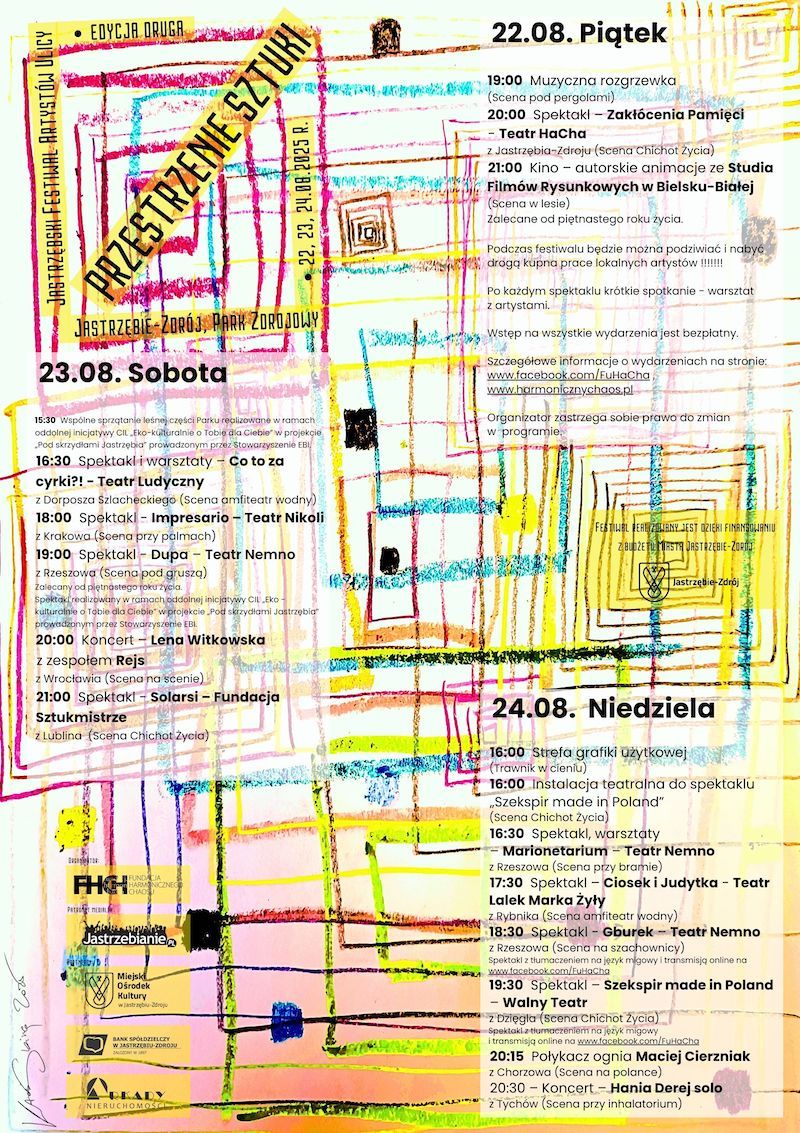 • EDYCJA DRUGA
JASTRZĘBSKI FESTIWAL ARTYSTÓW ULICY
PRZESTRZENIE SZTUKI
• 22, 23, 24.08.2025 R.
JASTRZĘBIE-ZDRÓJ, PARK ZDROJOWY
22.08. Piątek
19:00 Muzyczna rozgrzewka
(Scena pod pergolami)
20:00 Spektakl – Zakłócenia Pamięci
- Teatr HaCha
z Jastrzębia-Zdroju (Scena Chichot Życia)
21:00 Kino – autorskie animacje ze Studia
Filmów Rysunkowych w Bielsku-Białej
(Scena w lesie)
Zalecane od piętnastego roku życia.
Podczas festiwalu będzie można podziwiać i nabyć
drogą kupna prace lokalnych artystów !!!!!!!
Po każdym spektaklu krótkie spotkanie - warsztat
z artystami.
Wstęp na wszystkie wydarzenia jest bezpłatny.
Szczegółowe informacje o wydarzeniach na stronie:
www.facebook.com/FuHaCha ,
www.harmonicznychaos.pl
Organizator zastrzega sobie prawo do zmian
w programie.
23.08. Sobota
15:30 Wspólne sprzątanie leśnej części Parku realizowane w ramach
oddolnej inicjatywy CIL „Eko-kulturalnie o Tobie dla Ciebie" w projekcie
„Pod skrzydłami Jastrzębia" prowadzonym przez Stowarzyszenie EBI.
16:30 Spektakl i warsztaty – Co to za
cyrki?! - Teatr Ludyczny
z Dorposza Szlacheckiego (Scena amfiteatr wodny)
18:00 Spektakl - Impresario – Teatr Nikoli
z Krakowa (Scena przy palmach)
19:00 Spektakl - Dupa – Teatr Nemno
z Rzeszowa (Scena pod gruszą)
Zalecany od piętnastego roku życia.
Spektakl realizowany w ramach oddolnej inicjatywy CIL „Eko -
kulturalnie o Tobie dla Ciebie" w projekcie „Pod skrzydłami Jastrzębia"
prowadzonym przez Stowarzyszenie EBI.
20:00 Koncert – Lena Witkowska
z zespołem Rejs
z Wrocławia (Scena na scenie)
21:00 Spektakl - Solarsi – Fundacja
Sztukmistrze
z Lublina (Scena Chichot Życia)
FESTIWAL REALIZOWANY JEST DZIĘKI FINANSOWANIU
Z BUDŻETU MIASTA JASTRZĘBIE-ZDRÓJ
Jastrzębie-Zdrój
24.08. Niedziela
16:00 Strefa grafiki użytkowej
(Trawnik w cieniu)
16:00 Instalacja teatralna do spektaklu
„Szekspir made in Poland"
(Scena Chichot Życia)
16:30 Spektakl, warsztaty
– Marionetarium - Teatr Nemno
z Rzeszowa (Scena przy bramie)
17:30 Spektakl – Ciosek i Judytka - Teatr
Lalek Marka Żyły
z Rybnika (Scena amfiteatr wodny)
18:30 Spektakl - Gburek – Teatr Nemno
z Rzeszowa (Scena na szachownicy)
Spektakl z tłumaczeniem na język migowy i transmisją online na
www.facebook.com/FuHaCha
19:30 Spektakl – Szekspir made in Poland
– Walny Teatr
z Dzięgła (Scena Chichot Życia)
Spektakl z tłumaczeniem na język migowy
i transmisją online na www.facebook.com/FuHaCha
20:15 Połykacz ognia Maciej Cierzniak
z Chorzowa (Scena na polance)
20:30 – Koncert – Hania Derej solo
z Tychów (Scena przy inhalatorium)
ORGANIZATOR:
FHCH FUNDACJA
HARMONICZNEGO
CHAOSU
PATRONAT MEDIALNY:
Jastrzębianie.PL
Miejski
Ośrodek
Kultury
w Jastrzębiu-Zdroju
BANK SPÓŁDZIELCZY
W JASTRZĘBIU-ZDROJU
ARKADY
NIERUCHOMOŚCI